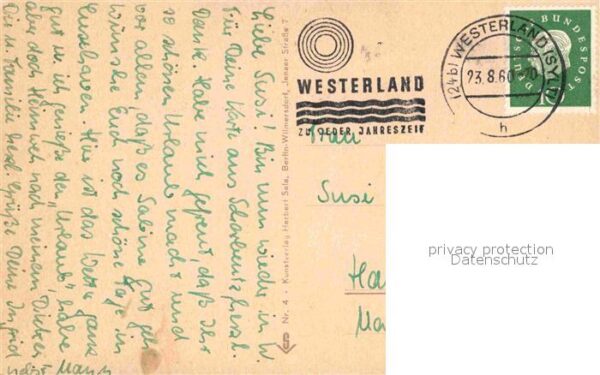 Liebe Susi! Bin nun wieder in W.
Für Deine Karte aus Scharbeutz herzl.
Dank. Habe mich gefreut, daß Ihr
so schönen Urlaub macht und
vor allem, daß es Sabine gut geht
Wünsche Euch noch schöne Tage in
Cuxhaven. Hier ist das Wetter ganz
gut u. ich genieße den "Urlaub", habe
aber doch Heimweh nach meinem Dicken
Dir u. Familie herzl. Grüße Deine Ingrid
nebst Mann
Nr. 4 - Kunstverlag Herbert Sala, Berlin-Wilmersdorf, Jenaer Straße 7
WESTERLAND
ZU JEDER JAHRESZEIT
(24b) WESTERLAND (SYLT)
23.8.60
h
DEUTSCHE BUNDESPOST
10
Frau
Susi
Ha
privacy protection
Datenschutz